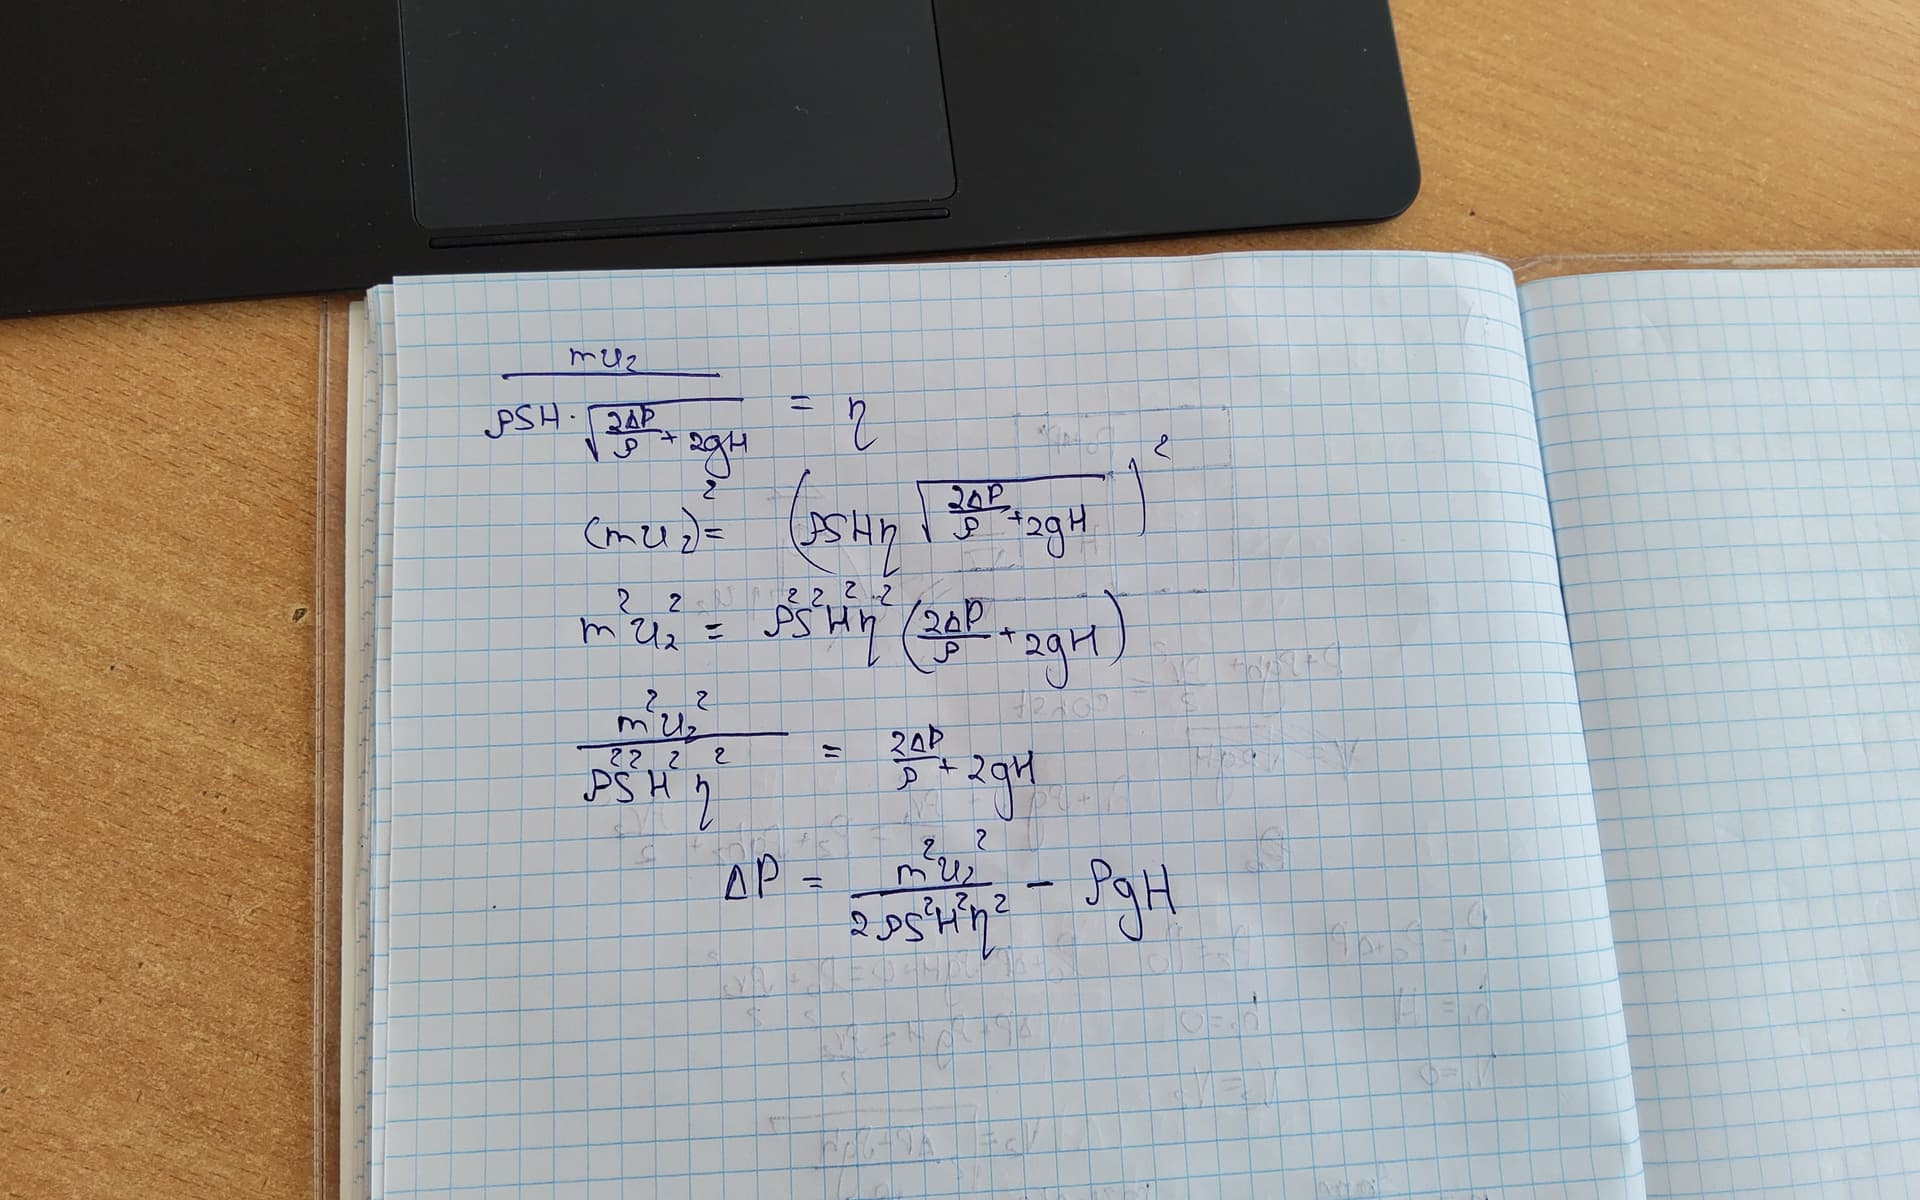 mu₂ / (ρSH · √(2ΔP/ρ + 2gH)) = η
(mu₂)² = (ρSHη √(2ΔP/ρ + 2gH))²
m²u₂² = ρ²S²H²η² (2ΔP/ρ + 2gH)
m²u₂² / (ρ²S²H²η²) = 2ΔP/ρ + 2gH
ΔP = m²u₂² / (2ρS²H²η²) − ρgH